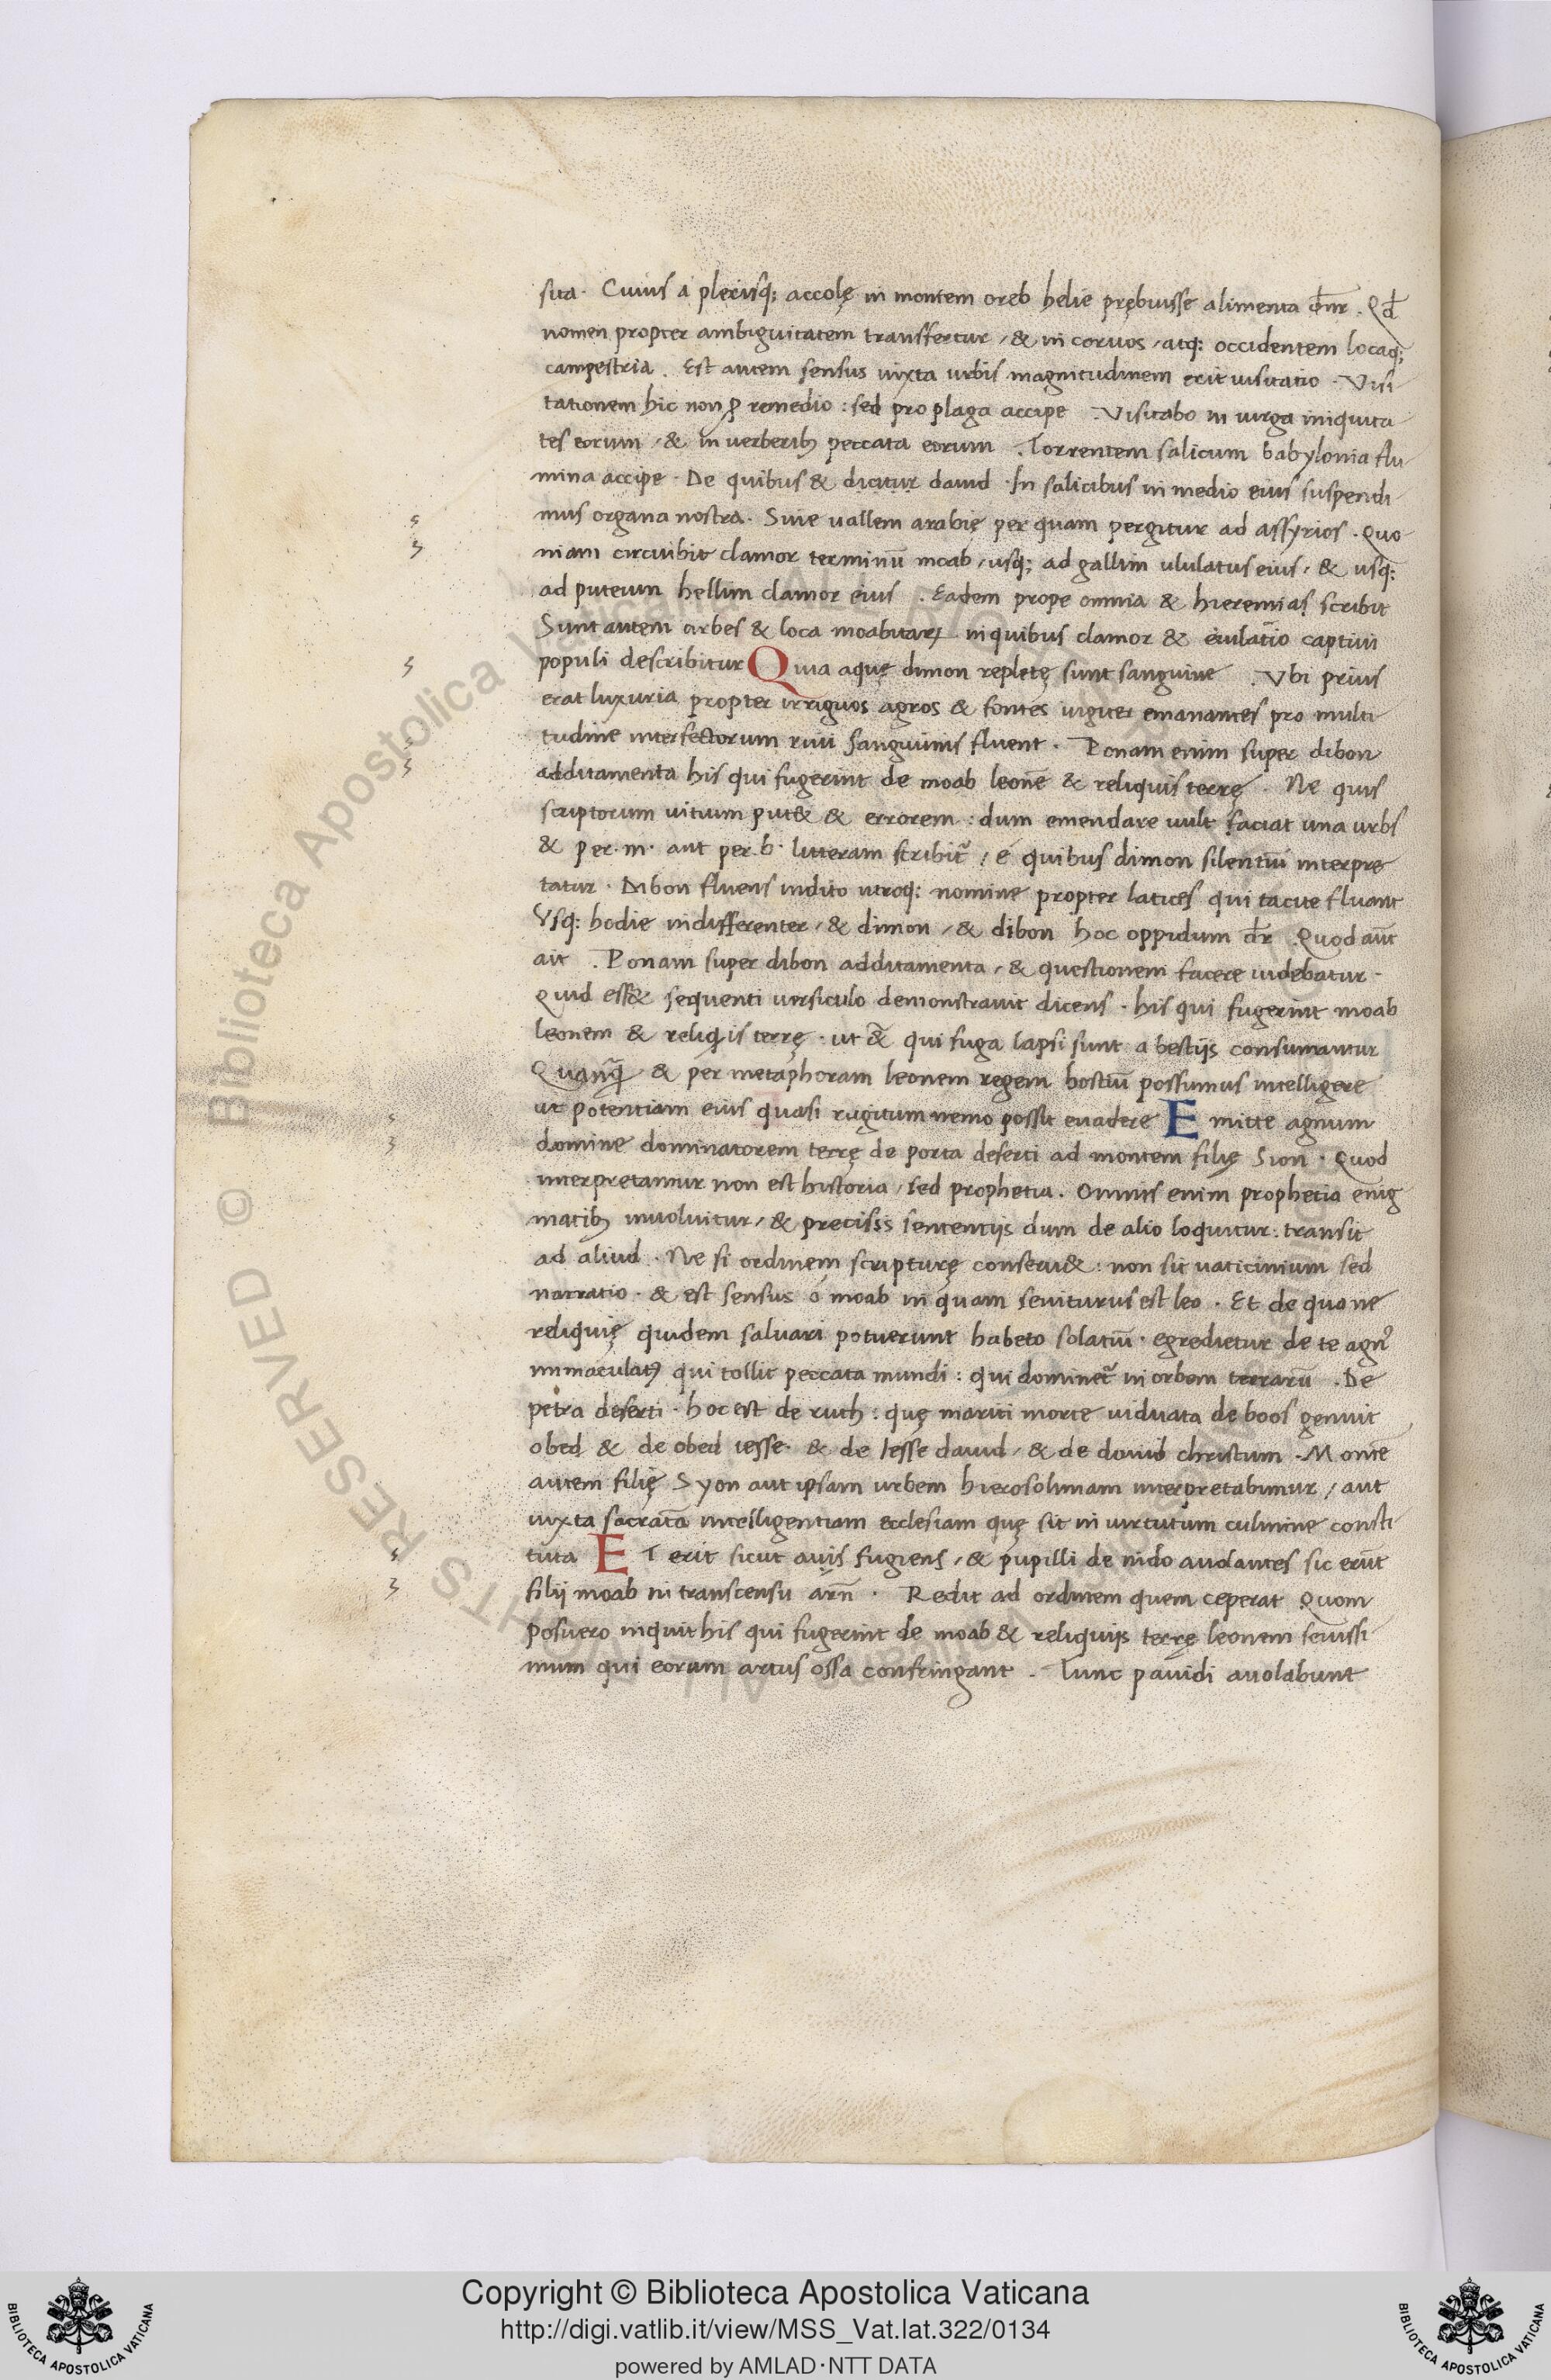 sita. Cuius a plerisq; accolę in montem oreb helie prębuisse alimenta dn̄r. Qd̄
nomen propter ambiguitatem transfertur, & in coruos, atq: occidentem locaq;
campestria. Est autem sensus iuxta urbis magnitudinem erit uisitatio. Visi
tationem hic non ꝓ remedio: sed pro plaga accipe. Visitabo in uirga iniquita
tes eorum, & in verberibȝ peccata eorum. Torrentem salicum babylonia flu
mina accipe. De quibus & dicitur dauid. In salicibus in medio eius suspendi
mus organa nostra. Siue uallem arabię per quam pergitur ad assyrios. Quo
niam circuibit clamor terminū moab, usq; ad gallim ululatus eius, & usq:
ad puteum hellim clamor eius. Eadem prope omnia & hieremias scribit
Sunt autem urbes & loca moabitaꝝ in quibus clamor & eiulatio captiui
populi describitur Quia aquę dimon repletę sunt sanguine. Vbi prius
erat luxuria propter irriguos agros & fontes iugiter emanantes pro multi
tudine interfectorum riui sanguinis fluent. Ponam enim super dibon
additamenta his qui fugerint de moab leonē & reliquis terrę. Ne quis
scriptorum uitium put& & errorem: dum emendare uult faciat una urbs
& per.m. aut per.b. litteram scribit᷑, é quibus dimon silentiū interpre
tatur. Dibon fluens indito utroq: nomine propter latices qui tacite fluant
Vsq: hodie indifferenter, & dimon, & dibon hoc oppidum dr̄. Quod aūt
ait. Ponam super dibon additamenta, & questionem facere uidebatur.
Quid ess& sequenti uersiculo demonstrauit dicens. his qui fugerint moab
leonem & reliquis terrę. ut & qui fuga lapsi sunt a bestijs consumantur
Quanq̄ & per metaphoram leonem regem hostiū possumus intelligere
ut potentiam eius quasi rugitum nemo possit euadere E mitte agnum
domine dominatorem terrę de porta deserti ad montem filię Sion. Quod
interpretamur non est historia, sed prophetia. Omnis enim prophetia enig
matibȝ inuoluitur, & precisis sententijs dum de alio loquitur: transit
ad aliud. Ne si ordinem scripturę conseru&: non sit uaticinium sed
narratio. & est sensus ó moab in quam seuiturus est leo. Et de qua ne
reliquię quidem saluari potuerunt habeto solatiū. egredietur de te agn᷒
immaculatȝ qui tollit peccata mundi: qui dominet᷑ in orbem terrarū. De
petra deserti. hoc est de ruth: quę mariti morte uiduata de boos genuit
obed & de obed iesse. & de Iesse dauid, & de dauid christum. Montē
autem filię Syon aut ipsam urbem hierosolimam interpretabimur, aut
iuxta sacratā intelligentiam ecclesiam quę sit in uirtutum culmine consti
tuta E T erit sicut auis fugiens, & pupilli de nido auolantes sic erūt
filij moab in transcensu arn̄. Redit ad ordinem quem ceperat Quom
posuero inquit his qui fugerint de moab & reliquijs terrę leonem seuissi
mum qui eorum artus ossa confringant. Tunc pauidi auolabunt
Copyright © Biblioteca Apostolica Vaticana
http://digi.vatlib.it/view/MSS_Vat.lat.322/0134
powered by AMLAD·NTT DATA